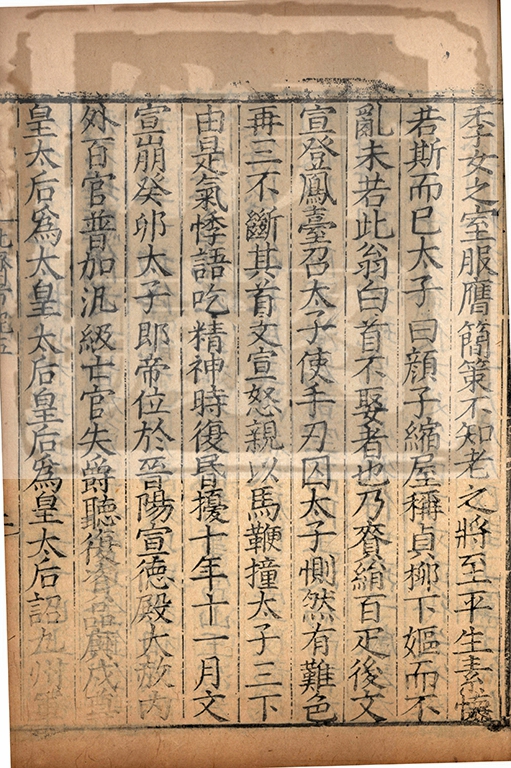 季女之室服膺簡策不知老之將至平生素懷
若斯而已太子曰顔子縮屋稱貞栁下嫗而不
亂未若此翁白首不娶者也乃賚絹百疋後文
宣登鳳臺召太子使手刃囚太子惻然有難色
再三不斷其首文宣怒親以馬鞭撞太子三下
由是氣悸語吃精神時復昏擾十年十一月文
宣崩癸卯太子即帝位於晉陽宣德殿大赦内
外百官普加汎級亡官失爵聽復資品
皇太后爲太皇太后皇后爲皇太后詔九州